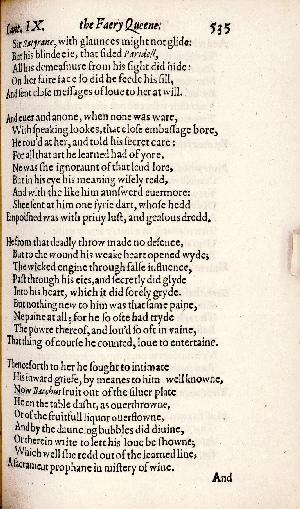 Cant. IX. the Faery Queene. 535
Sir Satyrane, with glaunces might not glide:
But his blinde eie, that sided Paridell,
All his demeasnure from his sight did hide:
On her faire face so did he feede his fill,
And sent close messages of loue to her at will.
And euer and anone, when none was ware,
With speaking lookes, that close embassage bore,
He rou'd at her, and told his secret care:
For all that art he learned had of yore.
Ne was she ignoraunt of that leud lore,
But in his eye his meaning wisely redd,
And with the like him aunswerd euermore:
Shee sent at him one fyrie dart, whose hedd
Empoisned was with priuy lust, and gealous dredd.
He from that deadly throw made no defence,
But to the wound his weake heart opened wyde;
The wicked engine through false influence,
Past through his eies, and secretly did glyde
Into his heart, which it did sorely gryde.
But nothing new to him was that same paine,
Ne paine at all; for he so ofte had tryde
The powre thereof, and lou'd so oft in vaine,
That thing of course he counted, loue to entertaine.
Thenceforth to her he sought to intimate
His inward griefe, by meanes to him well knowne,
Now Bacchus fruit out of the siluer plate
He on the table dasht, as ouerthrowne,
Or of the fruitfull liquor ouerflowne,
And by the dauncing bubbles did diuine,
Or therein write to lett his loue be showne;
Which well she redd out of the learned line,
A sacrament prophane in mistery of wine.
And